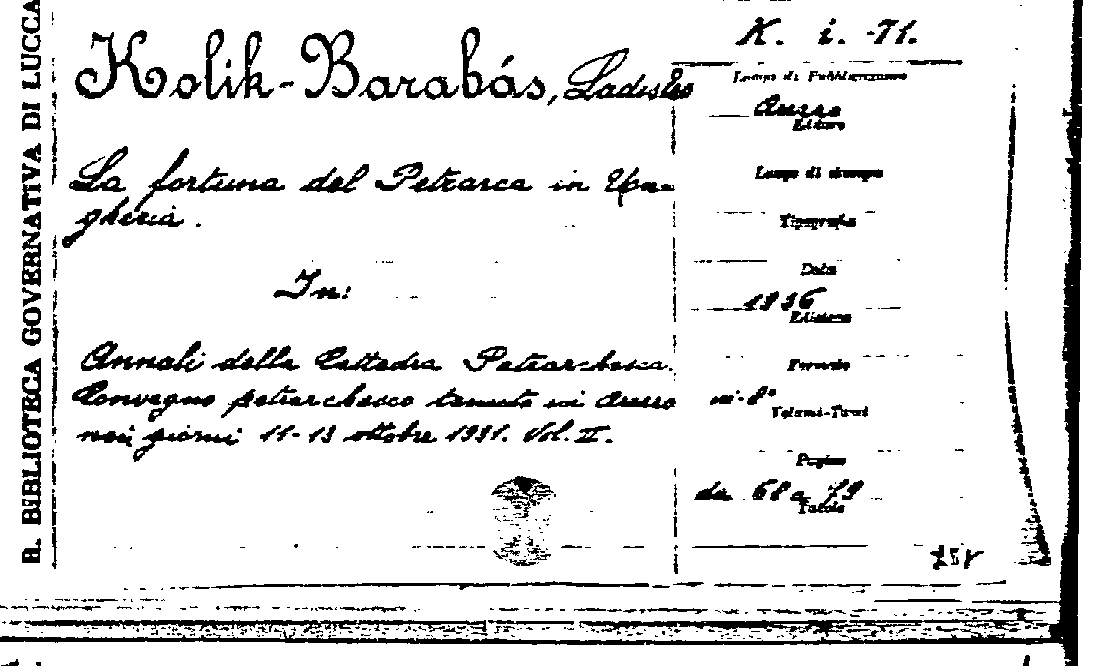 R. BIBLIOTECA GOVERNATIVA DI LUCCA
Kolik-Barabás, Ladislao
La fortuna del Petrarca in Un-
gheria.
In:
Annali della Cattedra Petrarchesca.
Convegno petrarchesco tenuto in Arezzo
nei giorni 11-13 ottobre 1931. Vol. II.
K. i. -71.
Luogo di Pubblicazione
Arezzo
Editore
Luogo di stampa
Tipografia
Data
1936
Edizione
Formato
in-8°
Volumi-Tomi
Pagine
da 68 a 79
Tavole